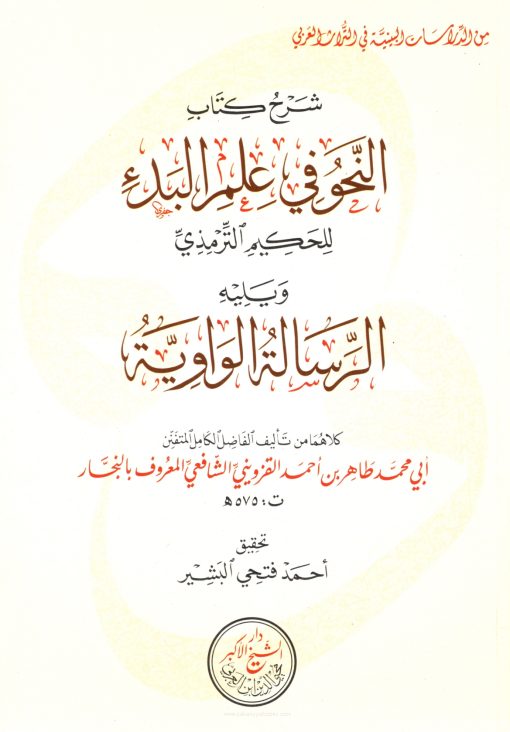 مِنَ الدِّرَاسَات البَيْنِيَّة فِي التُّرَاث العَرَبي
شَرْحُ كِتَابِ
النَّحْوُ فِي عِلْمِ البَدْءِ
لِلحَكِيمِ التِّرْمِذِيِّ
وَيَلِيْهِ
الرِّسَالَةُ الوَاوِيَّةُ
كلاهُمَا من تَأليف الفَاضِل الكَامِل المتفَنِّن
أبي محمَّد طَاهِر بن أحمَد القَزوينيِّ الشَّافعيِّ المَعرُوف بالنجَّار
ت: ٥٧٥هـ
تحقِيق
أحمَد فَتحِي البَشِير
دار
الشيخ الأكبر
محيي الدين ابن العربي